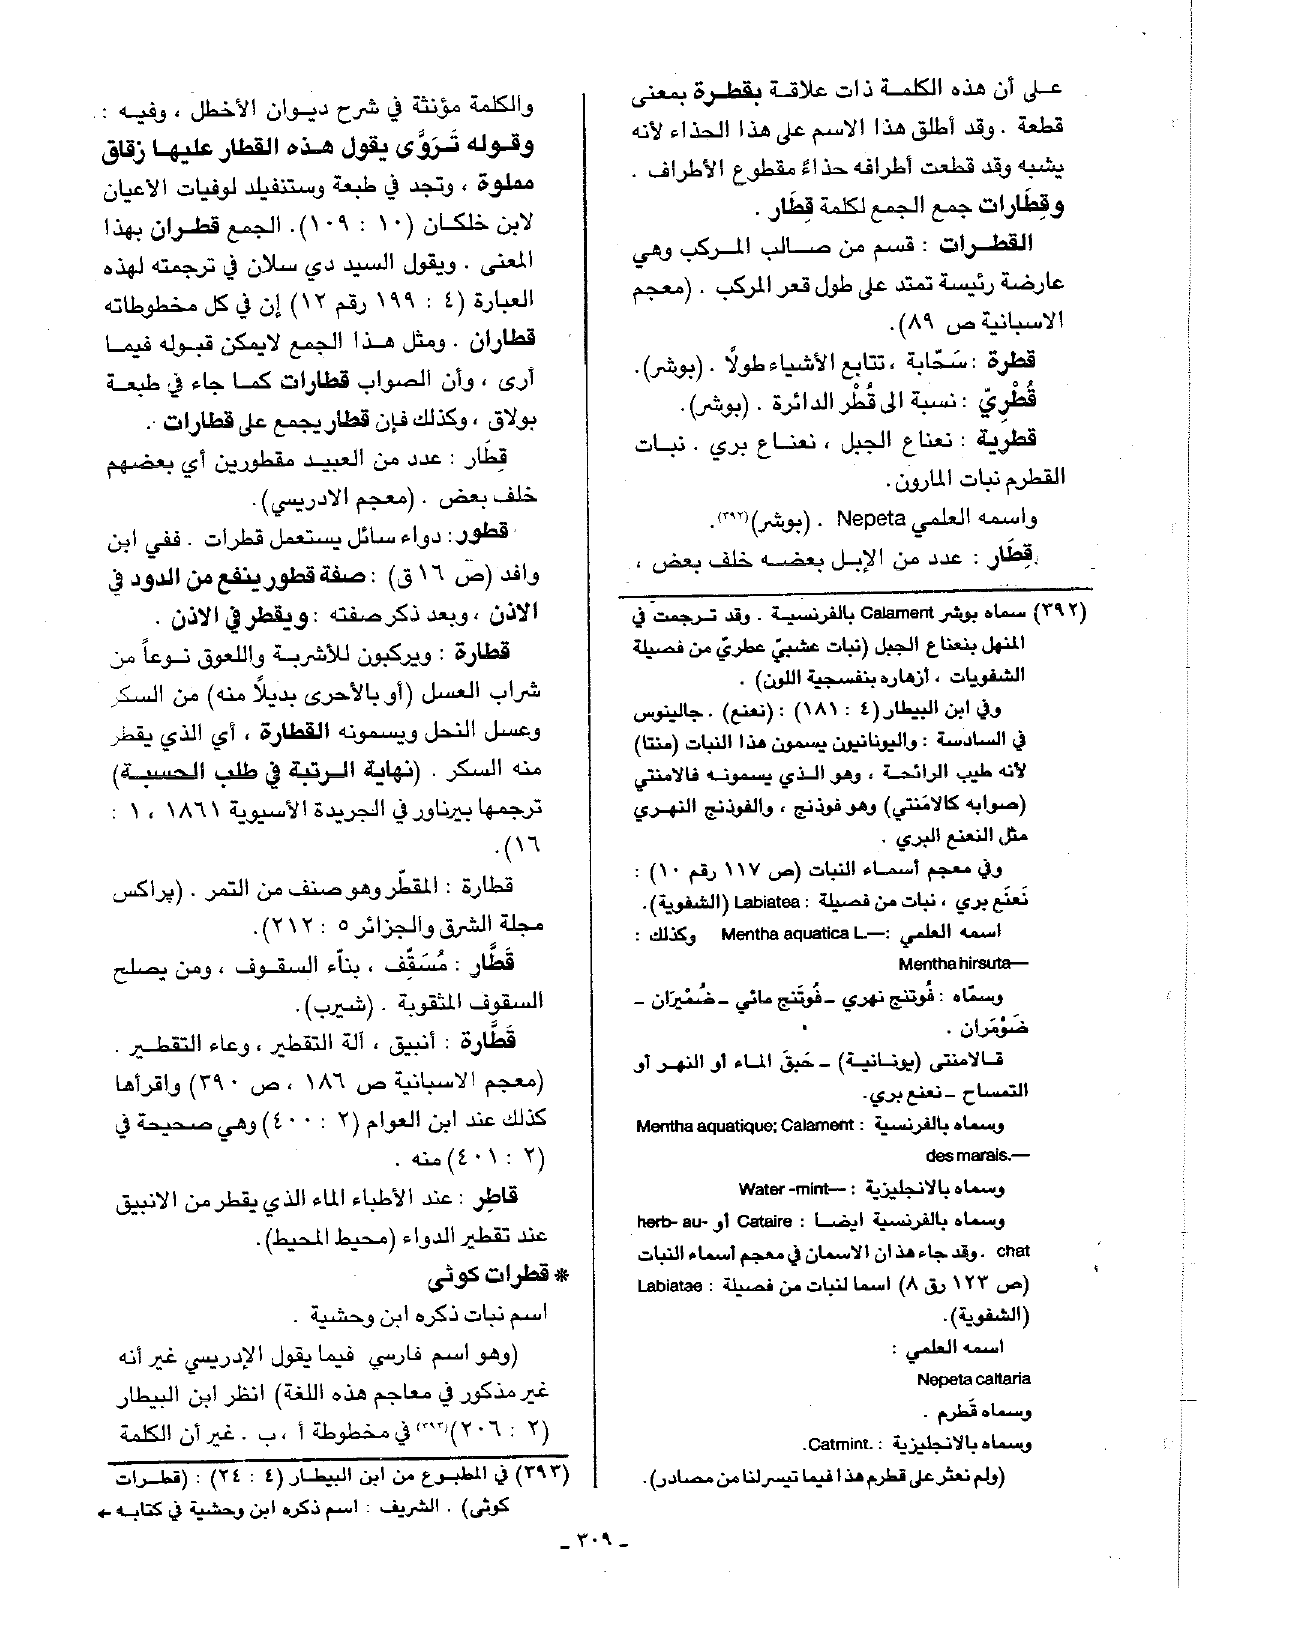 على أن هذه الكلمة ذات علاقة بقطرة بمعنى
قطعة . وقد أطلق هذا الاسم على هذا الحذاء لأنه
يشبه وقد قطعت أطرافه حذاءً مقطوع الأطراف .
وقِطَارات جمع الجمع لكلمة قِطَار .
القطرات : قسم من صالب المركب وهي
عارضة رئيسة تمتد على طول قعر المركب . (معجم
الاسبانية ص ٨٩).
قطرة : سَحَّابة ، تتابع الأشياء طولًا . (بوشر).
قُطْرِيّ : نسبة الى قُطْر الدائرة . (بوشر).
قطرية : نعناع الجبل ، نعناع بري . نبات
القطرم نبات المارون.
واسمه العلمي Nepeta . (بوشر)(٣٩٢).
قِطَار : عدد من الإبل بعضه خلف بعض ،
(٣٩٢) سماه بوشر Calament بالفرنسية . وقد ترجمت في
المنهل بنعناع الجبل (نبات عشبيّ عطريّ من فصيلة
الشفويات ، أزهاره بنفسجية اللون) .
وفي ابن البيطار (٤ : ١٨١) : (نعنع) . جالينوس
في السادسة : واليونانيون يسمون هذا النبات (منتا)
لأنه طيب الرائحة ، وهو الذي يسمونه فالامنتي
(صوابه كالامَنتي) وهو فوذنج ، والفوذنج النهري
مثل النعنع البري .
وفي معجم أسماء النبات (ص ١١٧ رقم ١٠) :
نَعنَع بري ، نبات من فصيلة : Labiatea (الشفوية).
اسمه العلمي :— Mentha aquatica L. وكذلك :
Mentha hirsuta—
وسمّاه : فُوتنج نهري – فُوتَنج مائي – ضُمْيَران –
ضَوْمَران .
قالامنتى (يونانية) – حَبَق الماء أو النهر أو
التمساح – نعنع بري.
وسماه بالفرنسية : Mentha aquatique; Calament
des marais.—
وسماه بالانجليزية : —Water -mint
وسماه بالفرنسية ايضا : Cataire أو herb- au-
chat . وقد جاء هذان الاسمان في معجم أسماء النبات
(ص ١٢٣ رق ٨) اسما لنبات من فصيلة : Labiatae
(الشفوية).
اسمه العلمي :
Nepeta cattaria
وسماه قَطرم .
وسماه بالانجليزية : .Catmint.
(ولم نعثر على قطرم هذا فيما تيسر لنا من مصادر).
والكلمة مؤنثة في شرح ديوان الأخطل ، وفيه :
وقوله تَرَوَّى يقول هذه القطار عليها زقاق
مملوة ، وتجد في طبعة وستنفيلد لوفيات الاعيان
لابن خلكان (١٠ : ١٠٩). الجمع قطران بهذا
المعنى . ويقول السيد دي سلان في ترجمته لهذه
العبارة (٤ : ١٩٩ رقم ١٢) إن في كل مخطوطاته
قطاران . ومثل هذا الجمع لايمكن قبوله فيما
أرى ، وأن الصواب قطارات كما جاء في طبعة
بولاق ، وكذلك فإن قطار يجمع على قطارات .
قِطَار : عدد من العبيد مقطورين أي بعضهم
خلف بعض . (معجم الادريسي).
قطور : دواء سائل يستعمل قطرات . ففي ابن
وافد (ص ١٦ق) : صفة قطور ينفع من الدود في
الاذن ، وبعد ذكر صفته : ويقطر في الاذن .
قطارة : ويركبون للأشربة واللعوق نوعاً من
شراب العسل (أو بالأحرى بديلًا منه) من السكر
وعسل النحل ويسمونه القطارة ، أي الذي يقطر
منه السكر . (نهاية الرتبة في طلب الحسبة)
ترجمها بيرناور في الجريدة الأسيوية ١٨٦١ ، ١ :
١٦).
قطارة : المقطّر وهو صنف من التمر . (پراكس
مجلة الشرق والجزائر ٥ : ٢١٢).
قَطَّار : مُسَقِّف ، بنَّاء السقوف ، ومن يصلح
السقوف المثقوبة . (شيرب).
قَطَّارة : أنبيق ، آلة التقطير ، وعاء التقطير .
(معجم الاسبانية ص ١٨٦ ، ص ٣٩٠) واقرأها
كذلك عند ابن العوام (٢ : ٤٠٠) وهي صحيحة في
(٢ : ٤٠١) منه .
قاطِر : عند الأطباء الماء الذي يقطر من الانبيق
عند تقطير الدواء (محيط المحيط).
* قطرات كوثي
اسم نبات ذكره ابن وحشية .
(وهو اسم فارسي فيما يقول الإدريسي غير أنه
غير مذكور في معاجم هذه اللغة) انظر ابن البيطار
(٢ : ٢٠٦)(٣٩٣) في مخطوطة أ ، ب . غير أن الكلمة
(٣٩٣) في المطبوع من ابن البيطار (٤ : ٢٤) : (قطرات
كوثى) . الشريف : اسم ذكره ابن وحشية في كتابه ←
ـ ٣٠٩ ـ